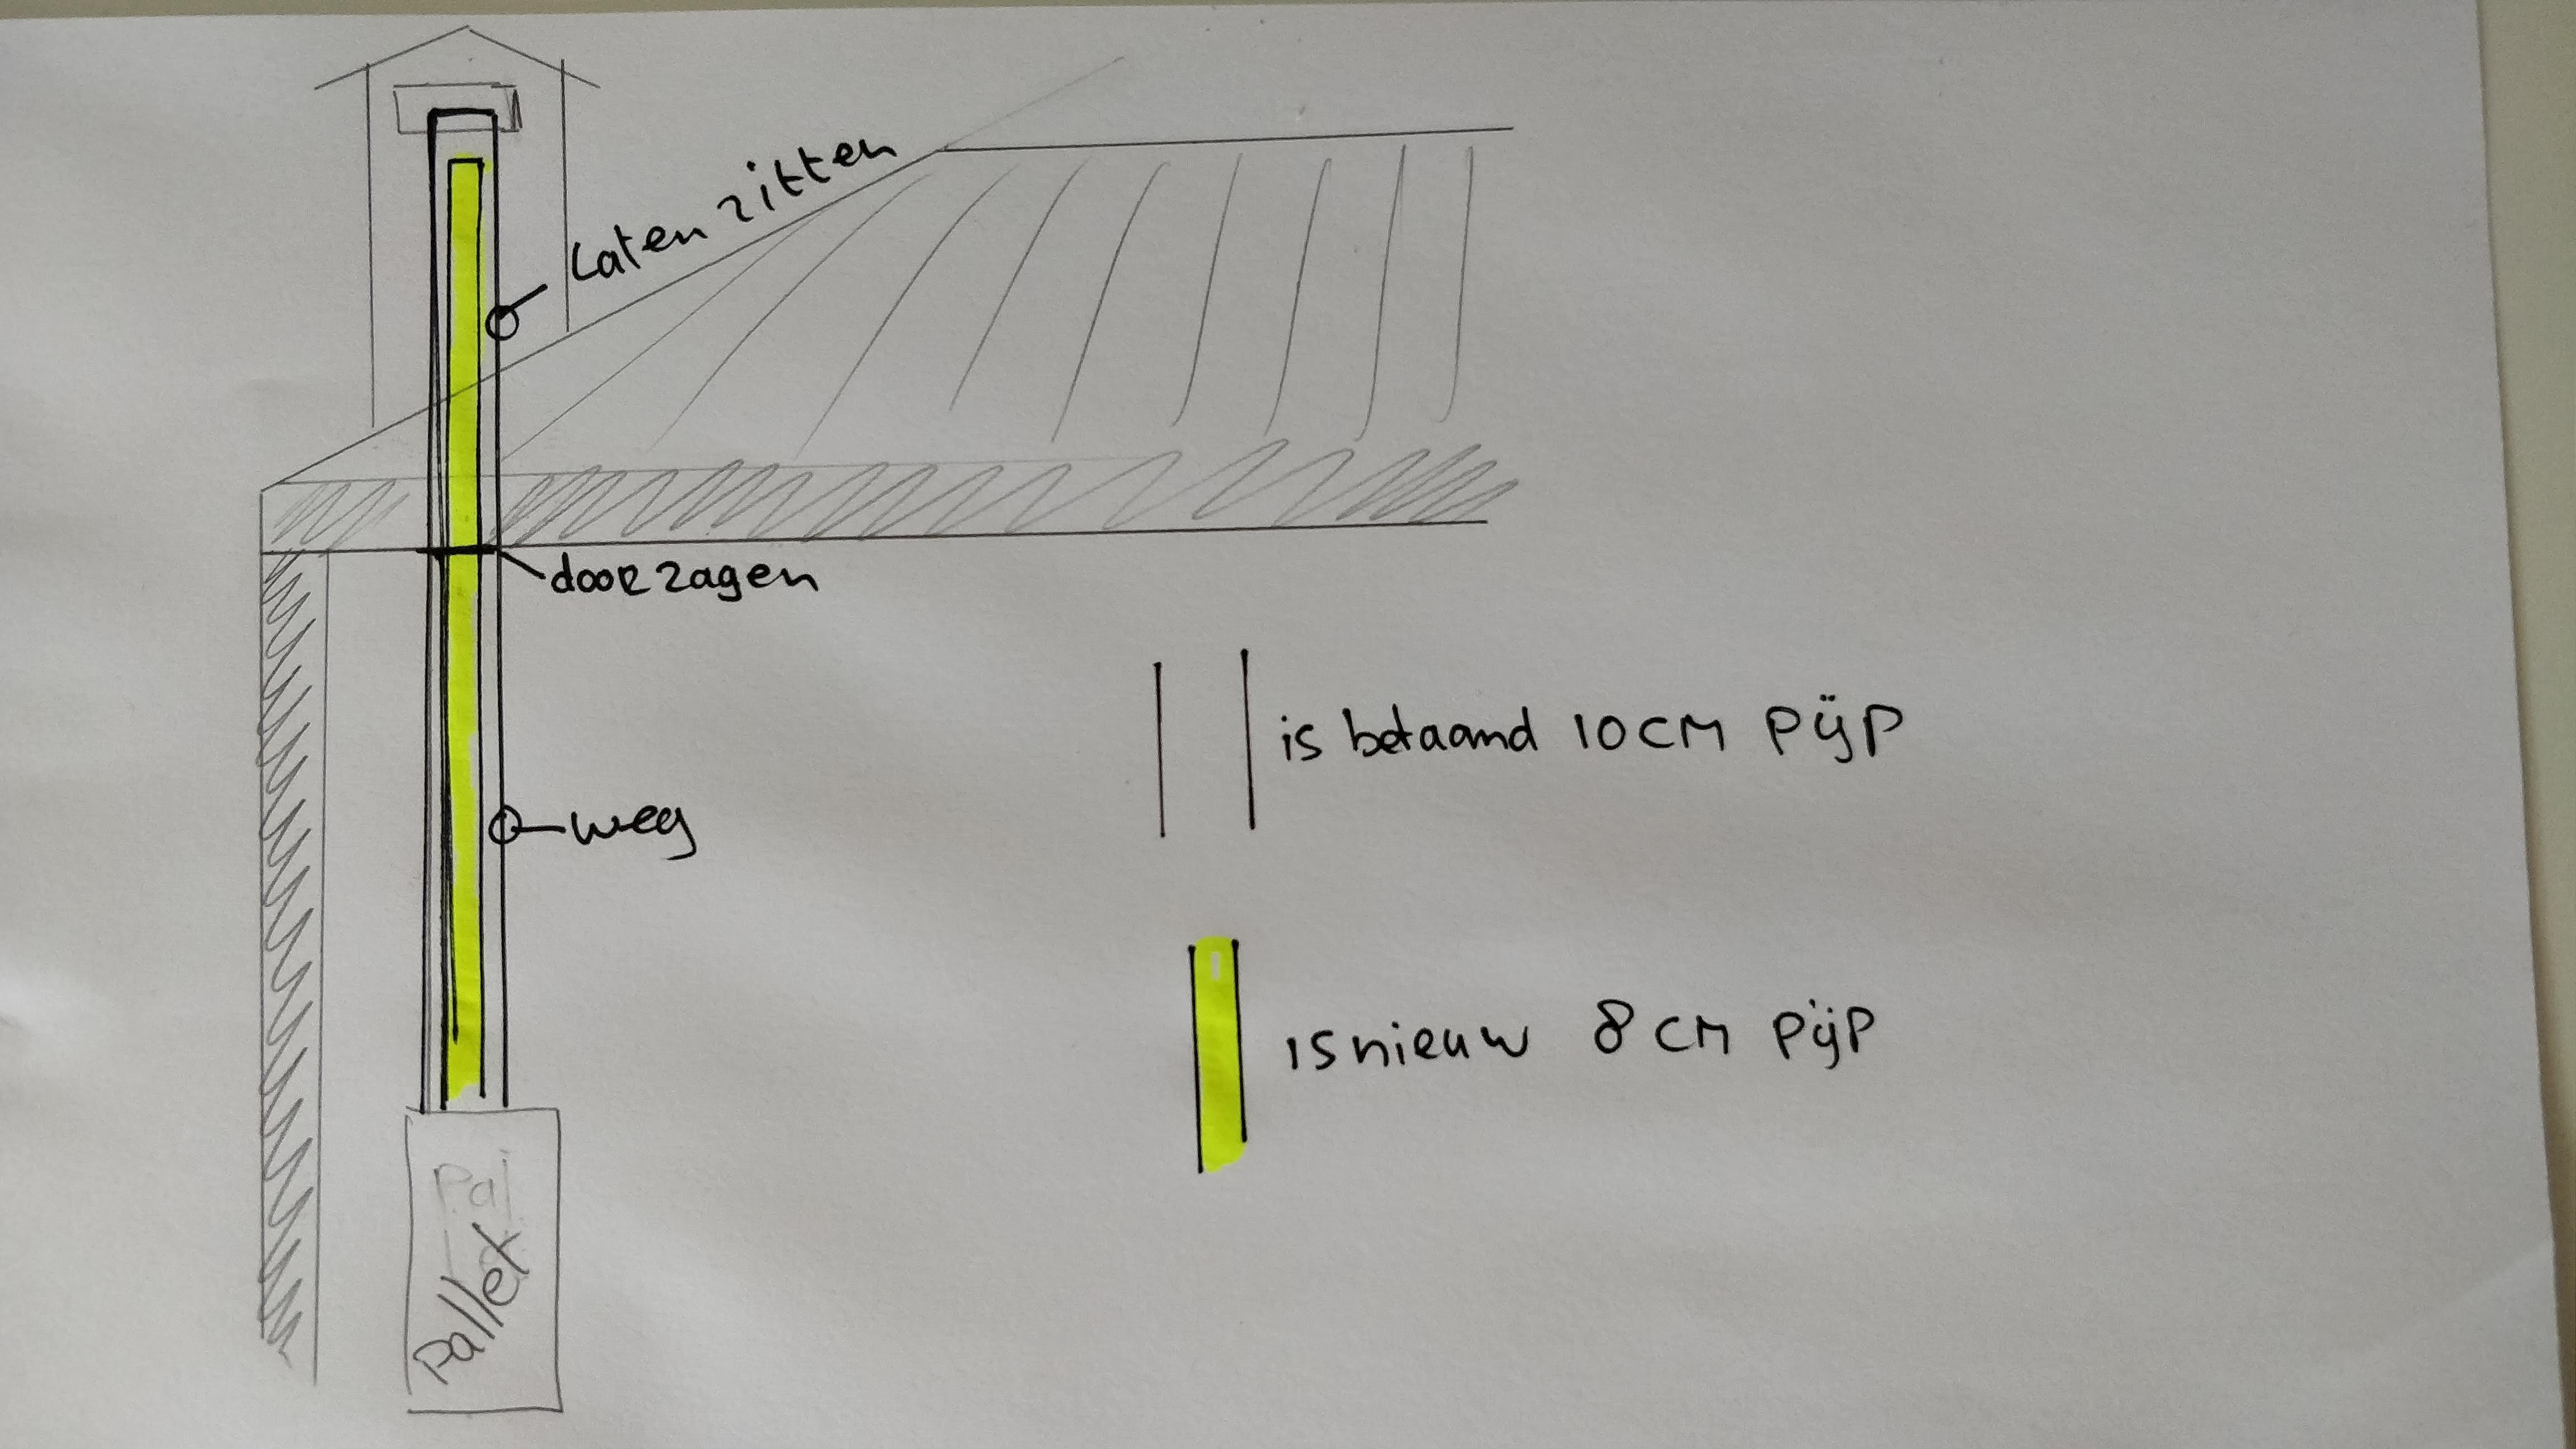 Laten zitten
doorzagen
weg
is betaand 10 CM PijP
is nieuw 8 CM PijP
Pal
Pallet